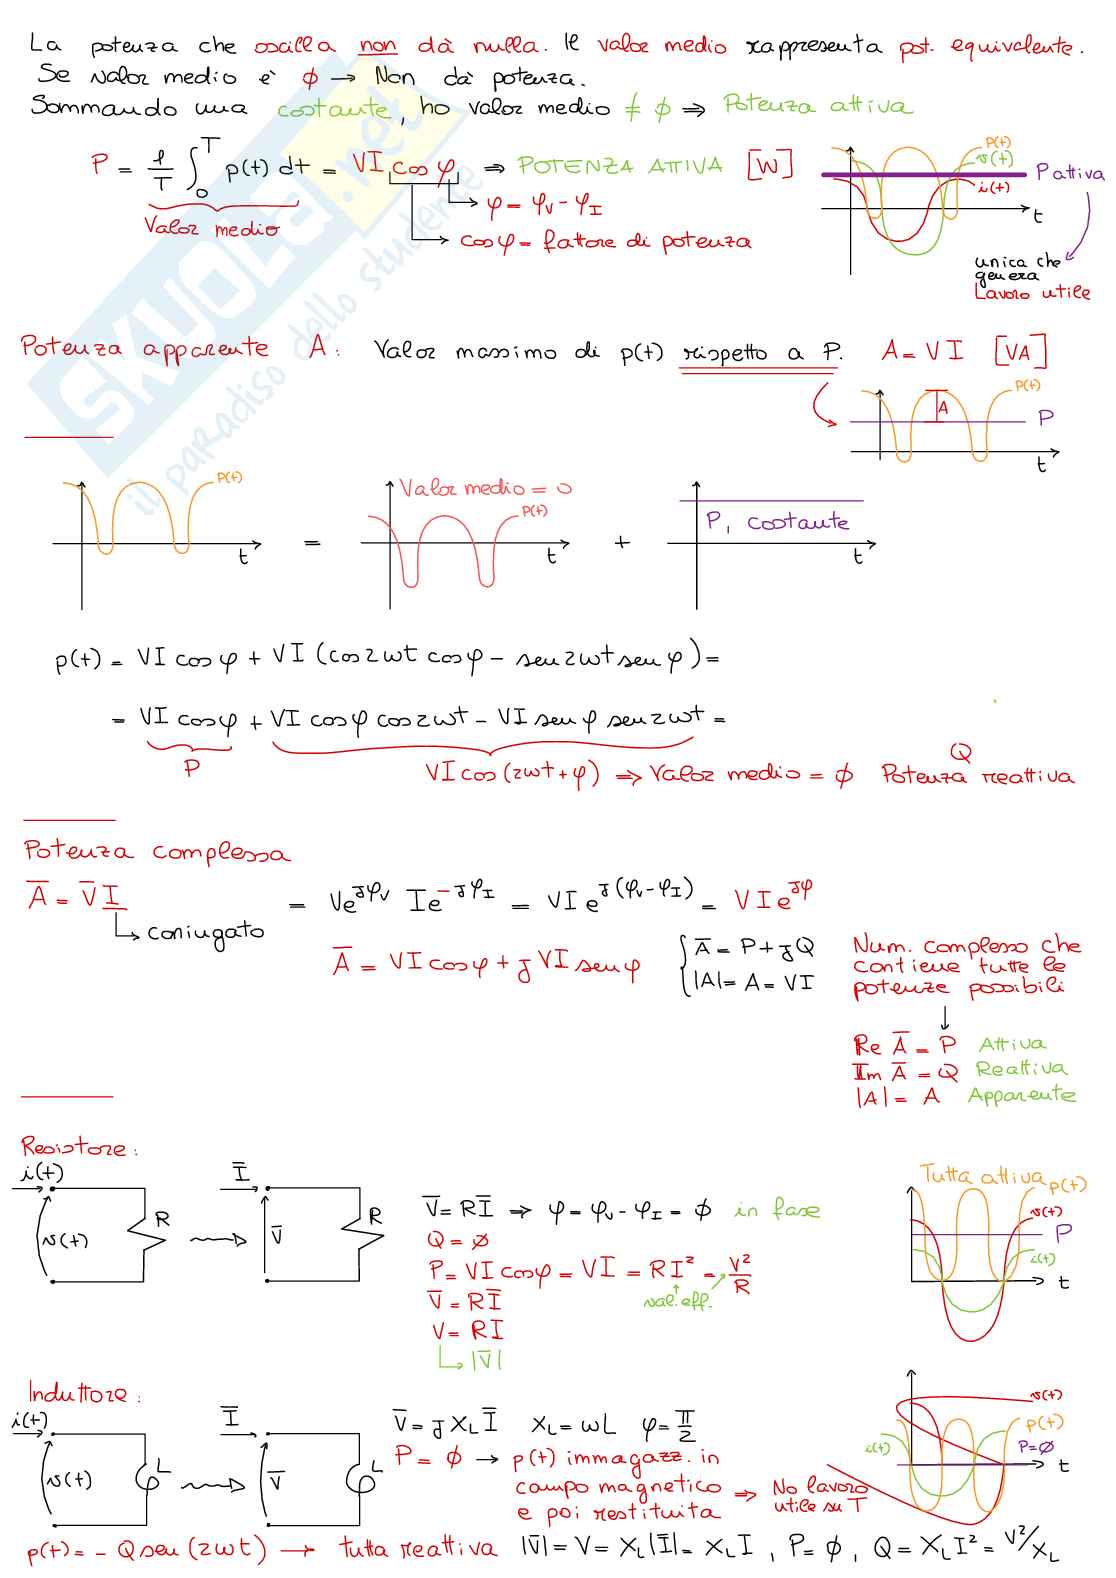 La potenza che oscilla non dà nulla. Il valor medio rappresenta pot. equivalente.
Se valor medio è ϕ → Non dà potenza.
Sommando una costante, ho valor medio ≠ ϕ ⇒ Potenza attiva
P = 1/T ∫₀ᵀ p(t) dt = VI cos φ ⇒ POTENZA ATTIVA [W]
Valor medio
φ = φ_V - φ_I
cosφ = fattore di potenza
p(t)
v(t)
i(t)
P attiva
t
unica che
genera
Lavoro utile
Potenza apparente A: Valor massimo di p(t) rispetto a P. A = VI [VA]
p(t)
A
P
t
p(t)
t
=
Valor medio = 0
p(t)
t
+
P, costante
t
p(t) = VI cosφ + VI (cos2ωt cosφ - sen2ωt senφ) =
= VI cosφ + VI cosφ cos2ωt - VI senφ sen2ωt =
P
VI cos(2ωt+φ) ⇒ Valor medio = ϕ Potenza reattiva
Q
Potenza complessa
A̅ = V̅ I̲ = Ve^jφ_V Ie^-jφ_I = VI e^j(φ_V-φ_I) = VI e^jφ
coniugato
A̅ = VI cosφ + j VI senφ
{ A̅ = P + jQ
|A| = A = VI
Num. complesso che
contiene tutte le
potenze possibili
↓
Re A̅ = P Attiva
Im A̅ = Q Reattiva
|A| = A Apparente
Resistore:
i(t)
v(t)
R
I̅
V̅
R
V̅ = R I̅ ⇒ φ = φ_V - φ_I = ϕ in fase
Q = ϕ
P = VI cosφ = VI = RI² = V²/R
val. eff.
V̅ = R I̅
V = RI
|V̅|
Tutta attiva
p(t)
v(t)
P
i(t)
t
Induttore:
i(t)
v(t)
L
I̅
V̅
L
V̅ = j X_L I̅ X_L = ωL φ = π/2
P = ϕ → p(t) immagazz. in
campo magnetico
e poi restituita ⇒ No lavoro
utile su T
v(t)
p(t)
i(t)
P=ϕ
t
p(t) = - Q sen(2ωt) → tutta reattiva |V̅| = V = X_L|I̅| = X_L I , P = ϕ , Q = X_L I² = V²/X_L
SKUOLA.net
il paradiso dello studente